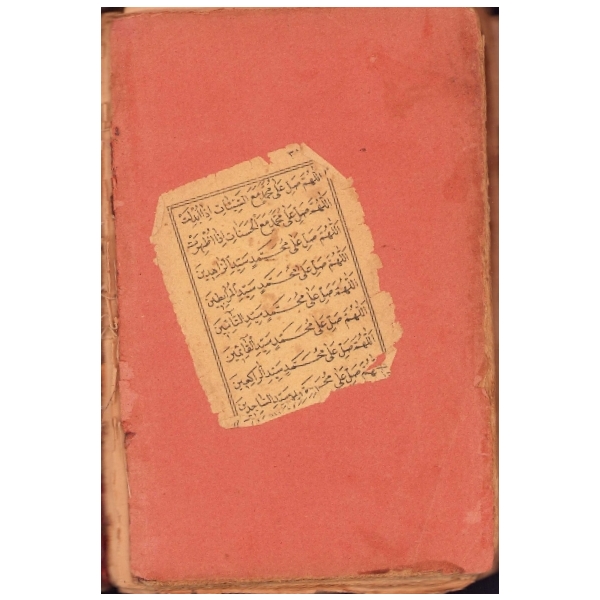 ٣٨
اللهم صل على محمد مع السيئات اذا ابدلت
اللهم صل على محمد مع الحسنات اذا اظهرت
اللهم صل على محمد سيد الزاهدين
اللهم صل على محمد سيد المرابطين
اللهم صل على محمد سيد التائبين
اللهم صل على محمد سيد القائمين
اللهم صل على محمد سيد الراكعين
اللهم صل على محمد سيد الساجدين